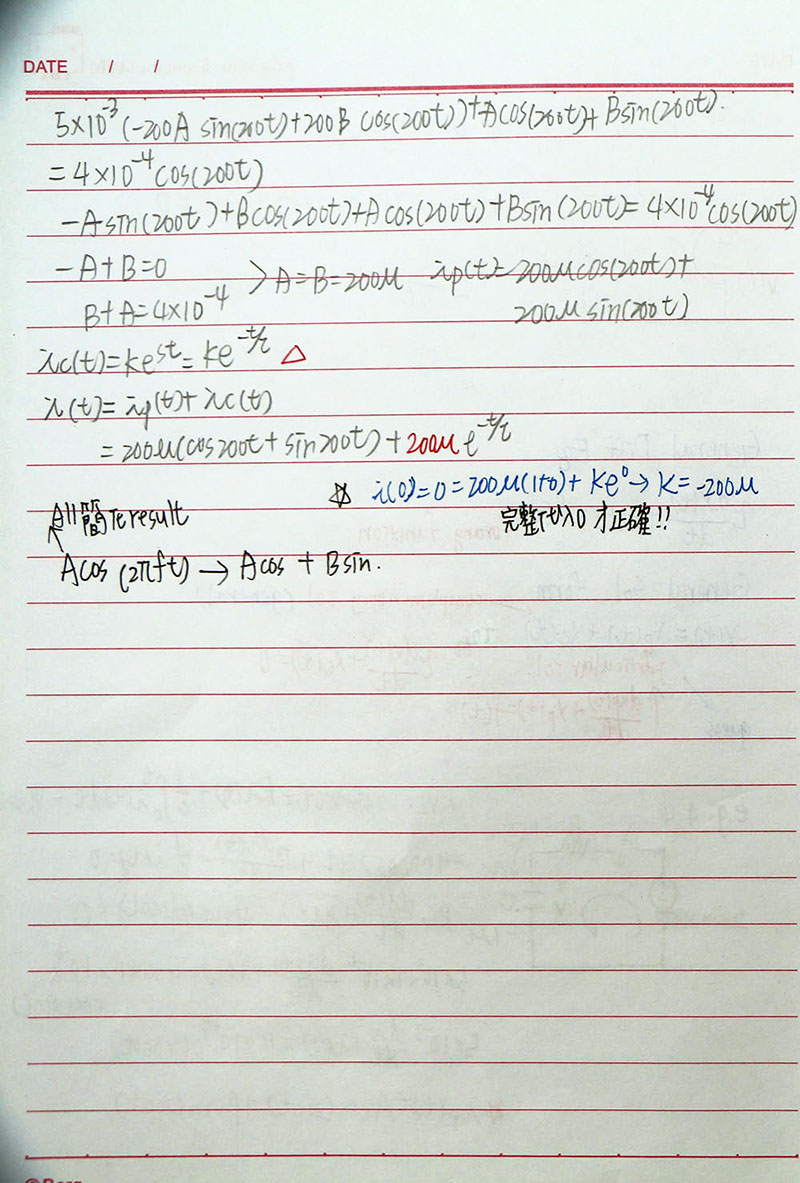 DATE / /
5×10⁻³(-200A sin(200t)+200B cos(200t))+Acos(200t)+Bsin(200t).
=4×10⁻⁴cos(200t)
-Asin(200t)+Bcos(200t)+Acos(200t)+Bsin(200t)=4×10⁻⁴cos(200t)
-A+B=0 > A=B=200M ip(t)=200Mcos(200t)+
B+A=4×10⁻⁴ 200Msin(200t)
ic(t)=ke^st=ke^-t/τ △
i(t)=ip(t)+ic(t)
=200M(cos200t+sin200t)+200M e^-t/τ
☆ i(0)=0=200M(1+0)+ke⁰→K=-200M
All 簡化result 完整 代入0 才正確!!
Acos(2πft)→Acos+Bsin.